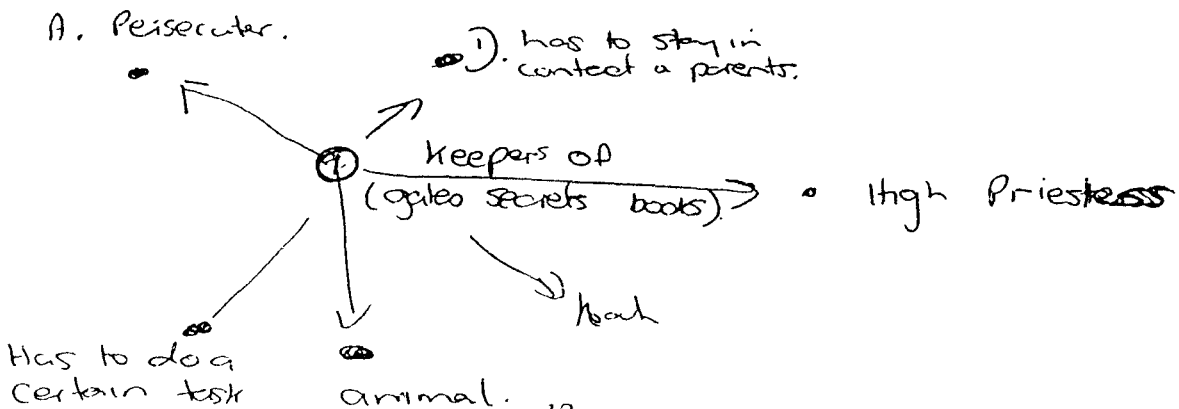 A. Peisecuter.
1). has to stay in
contact a parents.
Keepers of
(gates secrets books)
High Priestess
Noah
Has to do a
certain task
animal.